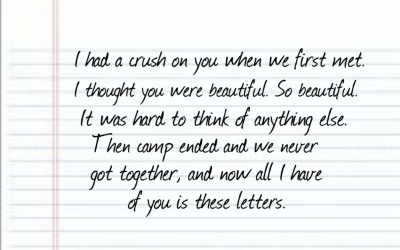 I had a crush on you when we first met.
I thought you were beautiful. So beautiful.
It was hard to think of anything else.
Then camp ended and we never
got together, and now all I have
of you is these letters.